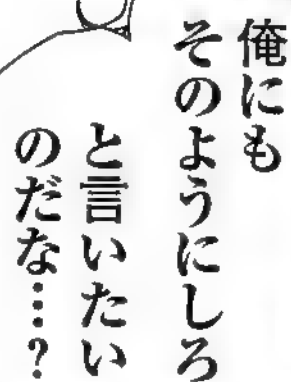 俺にも
そのようにしろ
と言いたい
のだな…？